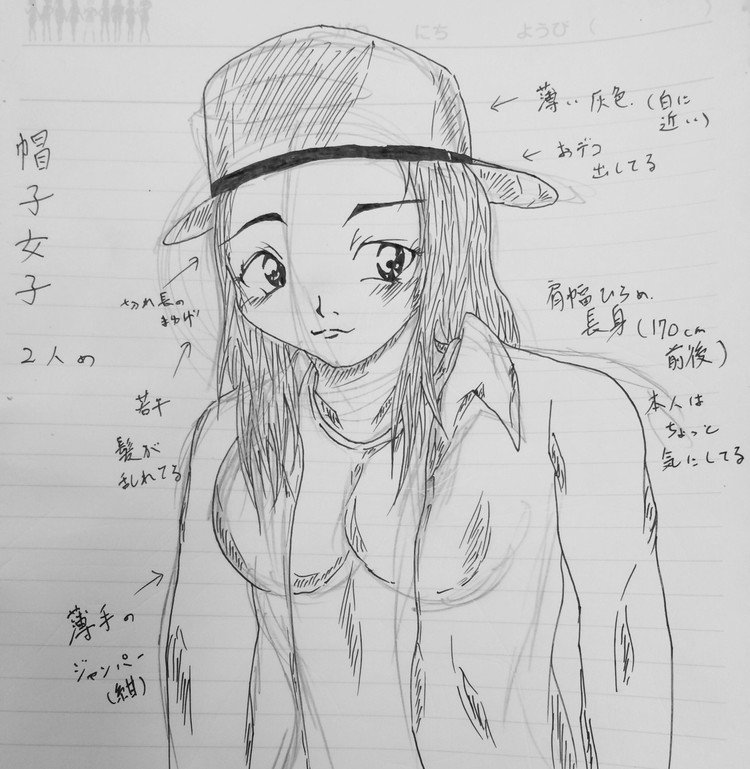 にち
ようび（
帽子女子
2人め
薄い灰色.（白に
近い）
おデコ
出してる
切れ長の
まゆげ
若干
髪が
乱れてる
肩幅ひろめ.
長身（170cm
前後）
本人は
ちょっと
気にしてる
薄手の
ジャンパー
（紺）